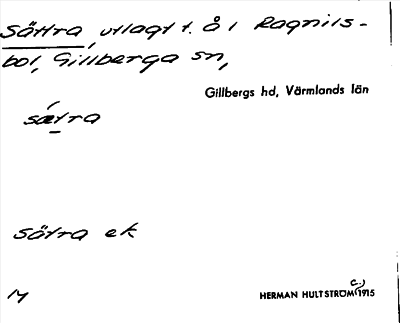 Sättra, utlagt t. å i Ragnils-
bol, Gillberga sn,
Gillbergs hd, Värmlands län
sætra
Sätra ek
14
HERMAN HULTSTRÖM (c.) 1915